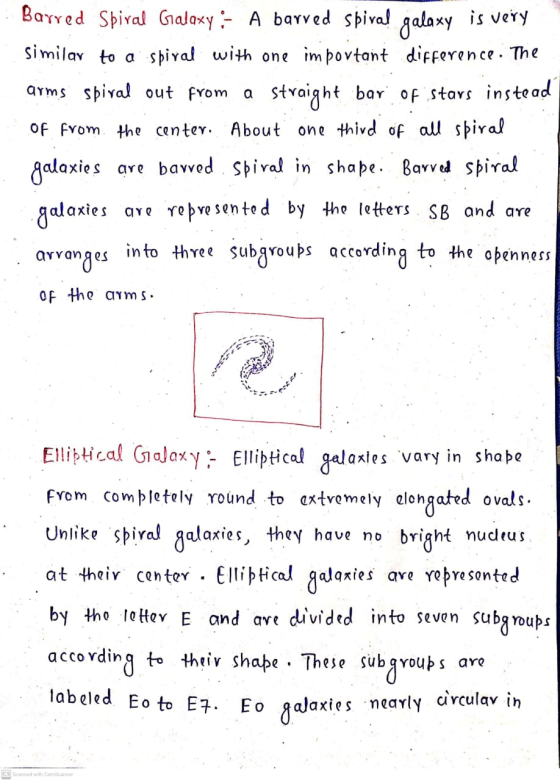 Barred Spiral Galaxy :- A barred spiral galaxy is very
similar to a spiral with one important difference. The
arms spiral out from a straight bar of stars instead
of from the center. About one third of all spiral
galaxies are barred spiral in shape. Barred spiral
galaxies are represented by the letters SB and are
arranges into three subgroups according to the openness
of the arms.
Elliptical Galaxy :- Elliptical galaxies vary in shape
from completely round to extremely elongated ovals.
Unlike spiral galaxies, they have no bright nucleus
at their center. Elliptical galaxies are represented
by the letter E and are divided into seven subgroups
according to their shape. These subgroups are
labeled E0 to E7. E0 galaxies nearly circular in
CS Scanned with CamScanner